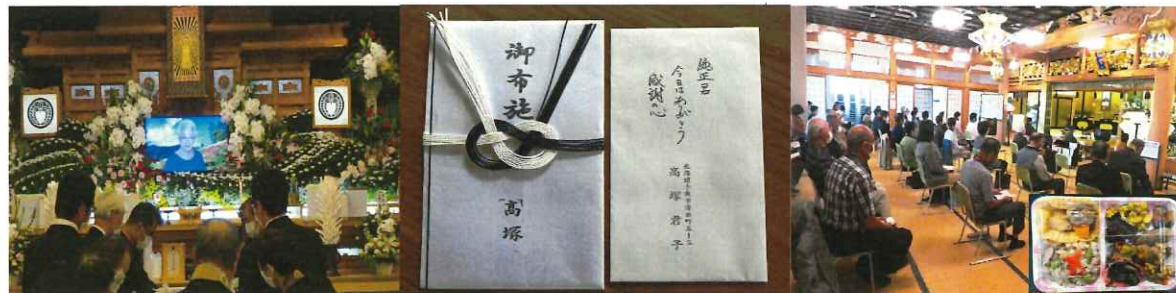 御布施
高塚
純正君
今日はありがとう
感謝の心
高塚君子